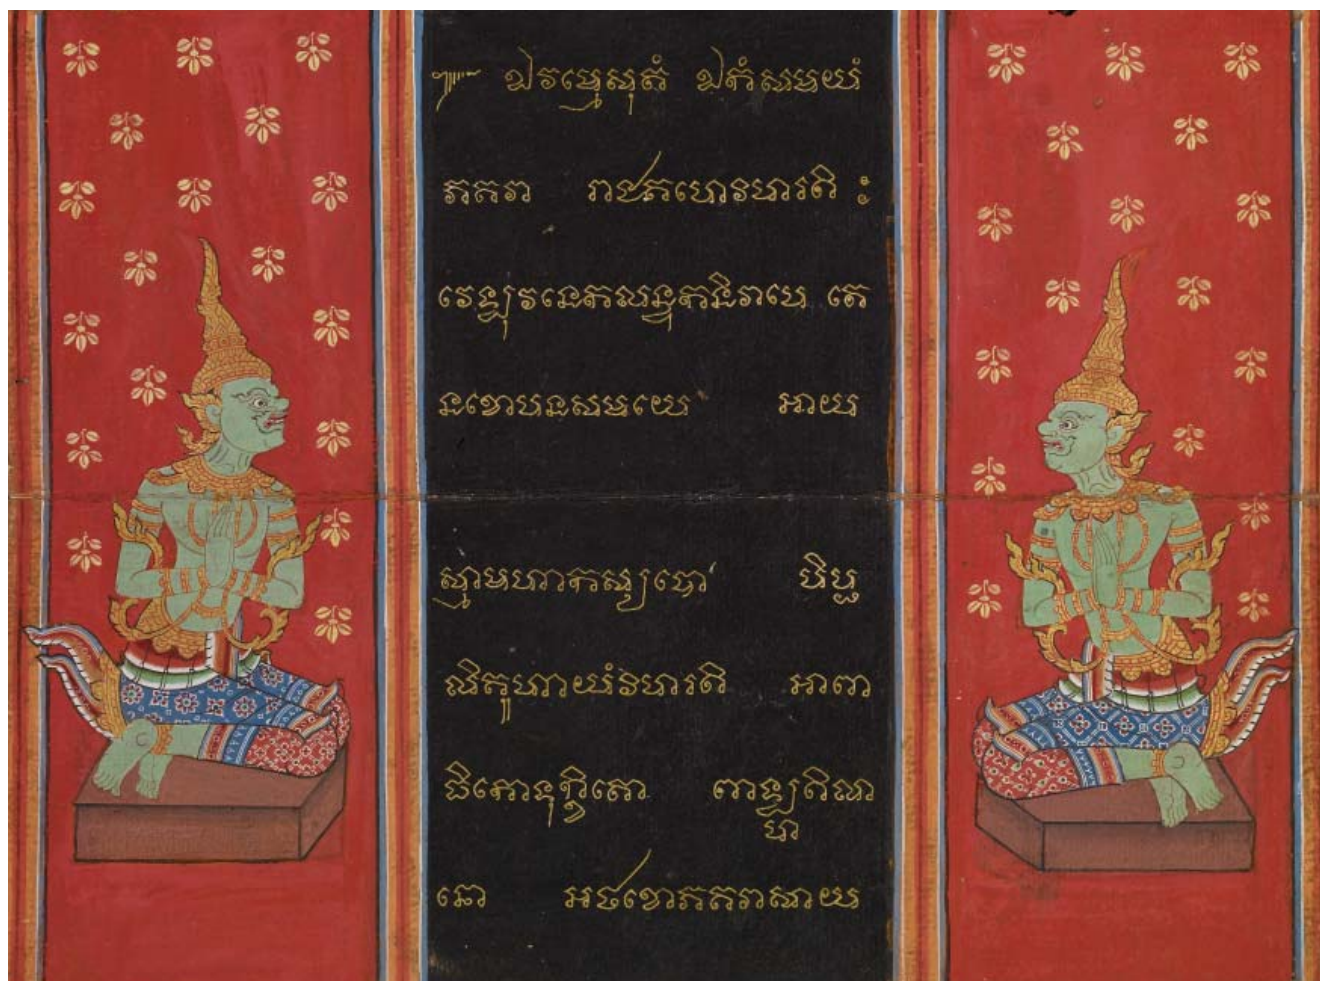 ឯវម្មេសុតំ ឯកំសមយំ
ភគវា រាជគហេវិហរតិ ៖
វេឡុវនេកលន្ទកនិវាបេ តេ
នខោបនសមយេ អាយ
ស្មាមហាកស្សបោ បិប្ផ
លិគូហាយំវិហរតិ អាពា
ធិកោទុក្ខិតោ ពាឡ្ហគិលា
នោ អថខោភគវាសាយ